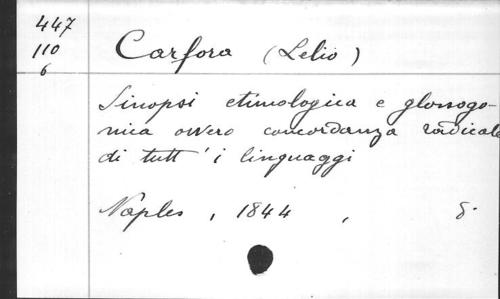 447
110
6
Carfora (Lelio)
Sinopsi etimologica e glossogo-
nica ovvero concordanza radicale
di tutt' i linguaggi
Naples, 1844, 8.